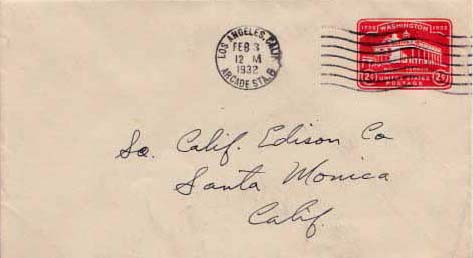 LOS ANGELES, CALIF.
FEB 3
12 M
1932
ARCADE STA.
1732 WASHINGTON 1932
2¢ 2¢
UNITED STATES
POSTAGE
So. Calif. Edison Co
Santa Monica
Calif.